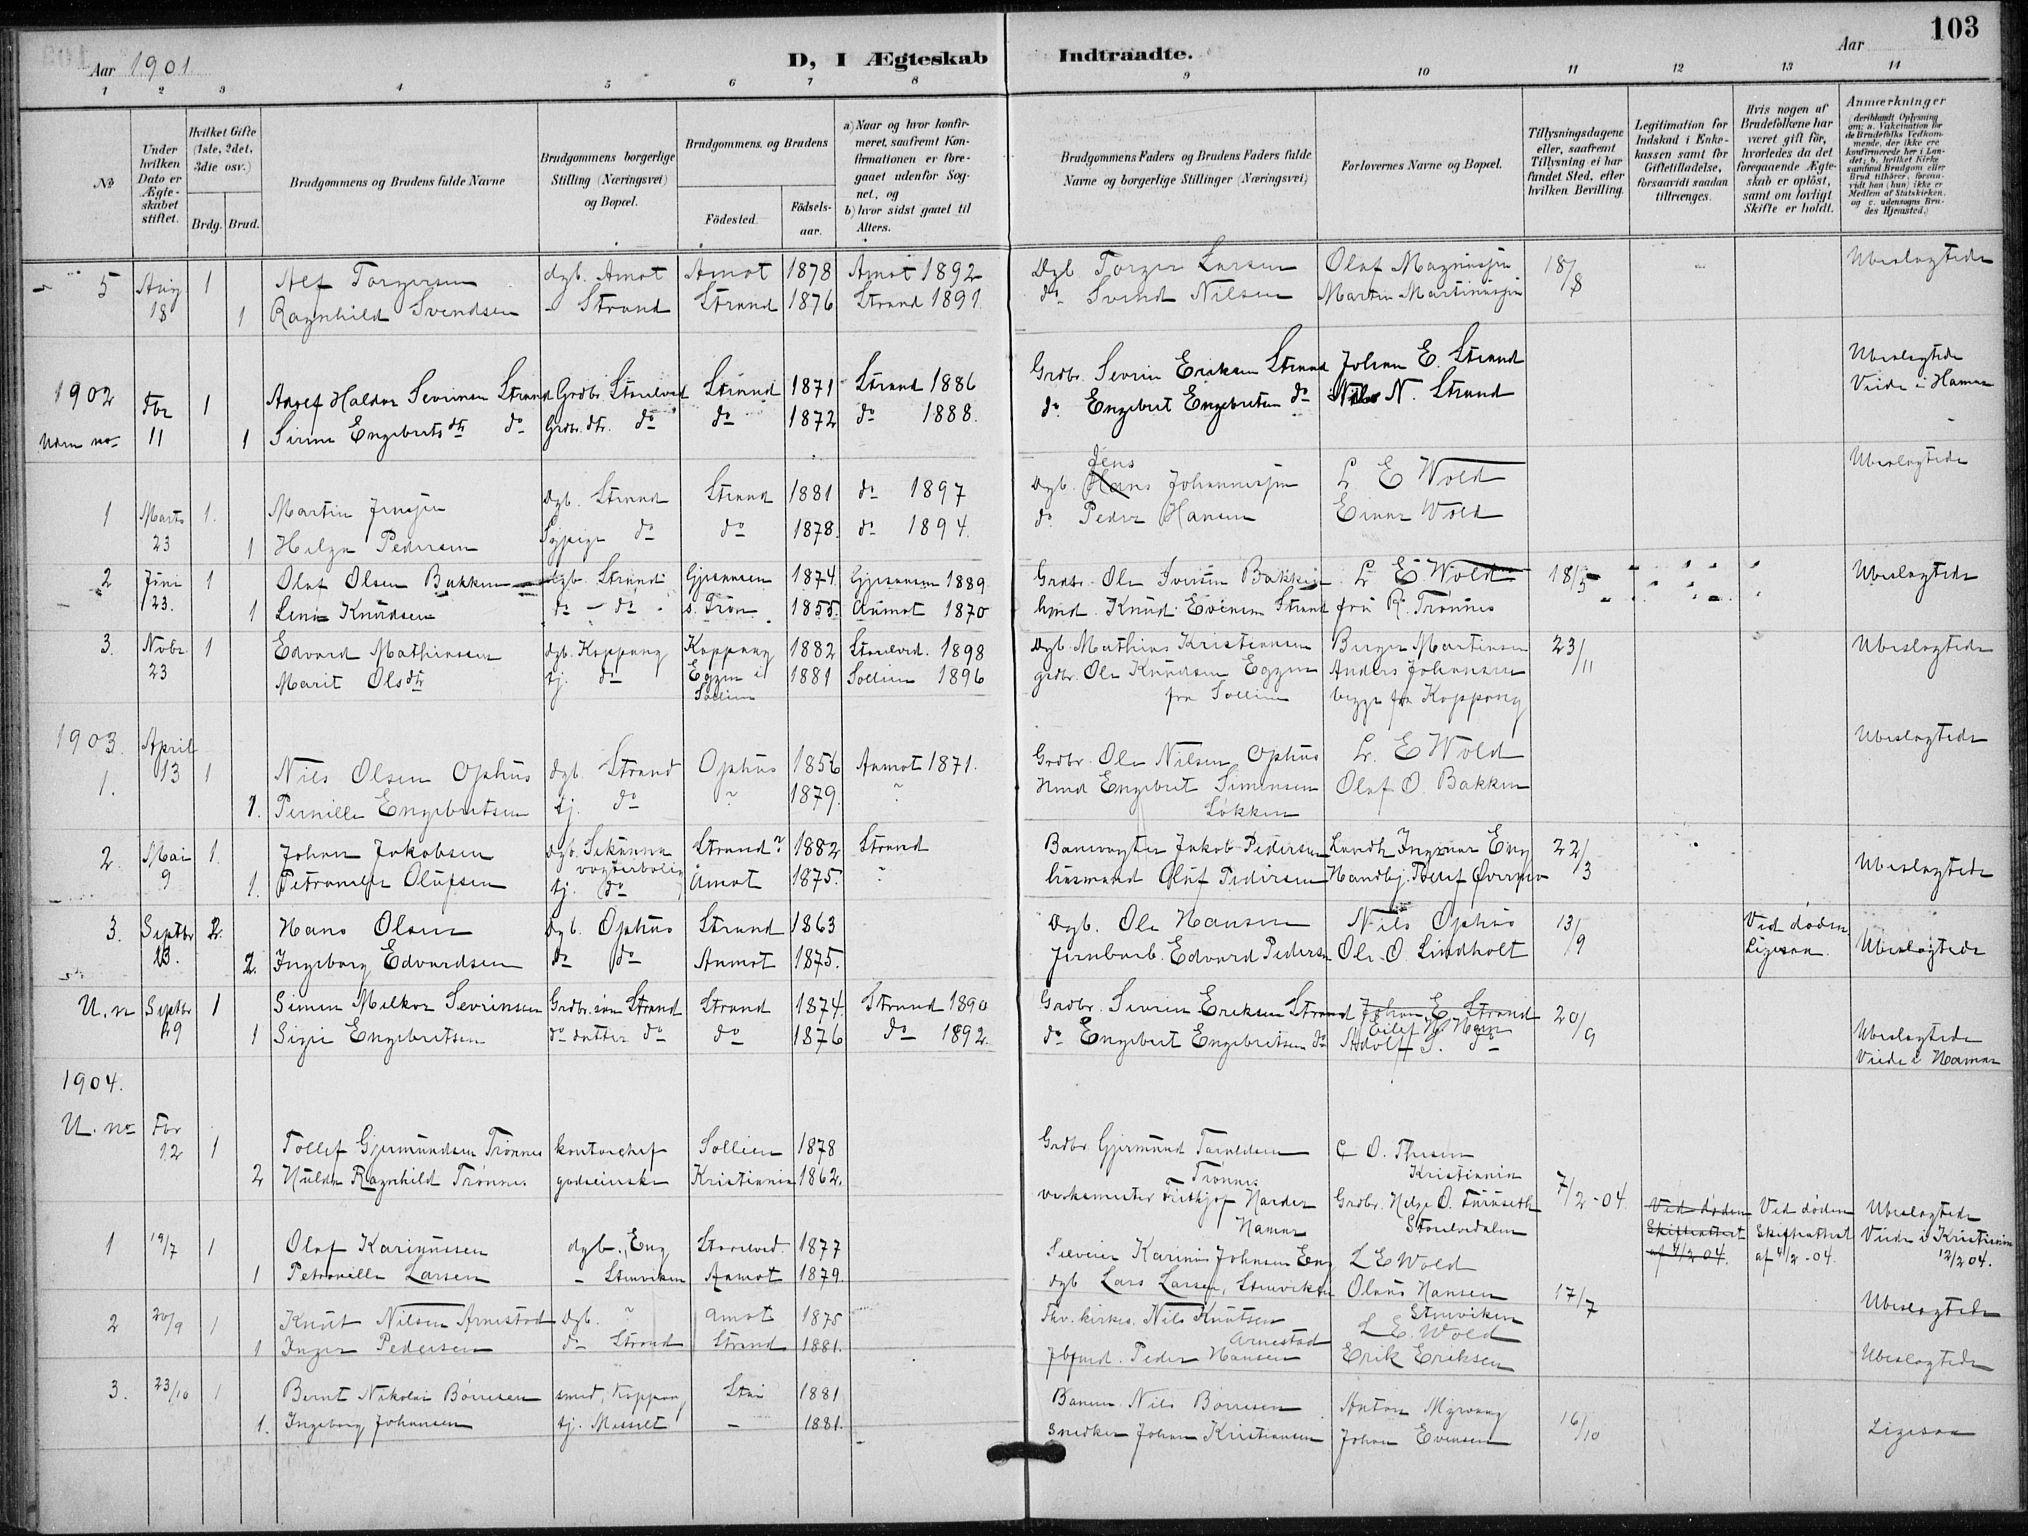 103
Aar 1901
D, I Ægteskab Indtraadte.
Aar
1 2 3 4 5 6 7 8 9 10 11 12 13 14
№
Under hvilken Dato er Ægteskabet stiftet.
Hvilket Gifte (1ste, 2det, 3die osv.)
Brdg. Brud.
Brudgommens og Brudens fulde Navne
Brudgommens borgerlige Stilling (Næringsvei) og Bopæl.
Brudgommens og Brudens
Födested.
Födselsaar.
a) Naar og hvor konfirmeret, saafremt Konfirmationen er foregaaet udenfor Sognet, og
b) hvor sidst gaaet til Alters.
Brudgommens Faders og Brudens Faders fulde Navne og borgerlige Stillinger (Næringsvei)
Forlovernes Navne og Bopæl.
Tillysningsdagene eller, saafremt Tillysning ei har fundet Sted, efter hvilken Bevilling.
Legitimation for Indskud i Enkekassen samt for Giftetilladelse, forsaavidt saadan tiltrænges.
Hvis nogen af Brudefolkene har været gift för, hvorledes da det foregaaende Ægteskab er oplöst, samt om lovligt Skifte er holdt.
Anmærkninger (deriblandt Oplysning om: a. Vakcination for de Brudefolks Vedkommende, der ikke ere konfirmerede her i Landet; b. hvilket Kirkesamfund Brudgom eller Brud tilhörer, forsaavidt han (hun) ikke er Medlem af Statskirken, og c. udensogns Brudes Hjemsted.)
5 Aug 1 Alf Torgersen dgb. Amot Amot 1878 Amot 1892 Dgb Torger Larsen Olaf Magnusjen 18/8 Ubeslagtede
18 1 Ragnhild Svendsen - Strand Strand 1876 Strand 1891. do Svend Nilsen Martin Martinusjen
1902 Fbr 1 Adolf Haldor Severinsen Strand Grdbr. Storelved Strand 1871 Strand 1886 Grdbr. Severin Eriksen Strand Johan E. Strand Ubeslagtede
Viede i Hamar
Uden no 11 1 Sirine Engebretsdtr do Grdbr. dtr. do do 1872 do 1888. do Engebret Engebretsen do Nils N. Strand
1 Marts 1. Martin Jensjen dgb. Strand Strand 1881 do 1897 Dgb. Hans Jens Johannesjen L E Wold Ubeslagtede
23 1 Helga Pedersen Sypige do do 1878. do 1894. do Peder Hansen Einar Wold
2 Juni 1 Olaf Olsen Bakken dgb. Strand Gjesaasen 1874. Gjesaasen 1889. Grdbr. Ole Iversen Bakken L E Wold 18/5 Ubeslagtede
23. 1 Lina Knudsen do - do 1855. Aamot 1870 hmd. Knud Evensen Strand fra R. Trønnes
3. Nvbr 1 Edvard Mathiassen dgb. Koppang Koppang 1882 Storelved. 1898 Dgb. Mathias Kristiansen Birger Martinsen 23/11 Ubeslagtede
23 Marit Olsdtr tj. do Eggen i Sollien 1881 Sollien 1896 grdbr. Ole Knudsen Eggen Anders Johansen
fra Sollien begge fra Koppang
1903. April
1. 13 1 Nils Olsen Ophus dgb. Strand Ophus 1856 Aamot 1871. Grdbr. Ole Nilsen Ophus L. E Wold Ubeslagtede
1. Pernille Engebretsen tj. do ~ 1879. ~ Hmd Engebret Simensen Løkken Olaf O. Bakken
2. Mai 1. Johan Jakobsen dgb. Sekunna vogterbolig Strand? 1882 Strand Banevogter Jakob Pedersen Landh Ingvar Eng 22/3
9 1. Petronelle Olufsen tj. do Aamot 1875. Husmand Oluf Pedersen Handbj. Tollef Øvermo Ubeslagtede
3. Septbr 2. Hans Olsen Dgb. Ophus Strand 1863 Dgb. Ole Hansen Nils Ophus 13/9 Ved døden.
13. 2. Ingeborg Edvardsen do do Aamot 1875. Jernbarb. Edvard Pedersen Ole O. Lindholt Ligesaa. Ubeslagtede
U. n Septbr 1 Simen Melkor Severinsen Grdbr. søn Strand Strand 1874. Strand 1890 Grdbr. Severin Eriksen Strand Johan E. Strand 20/9
29 1 Sigri Engebretsen do datter do do 1876 do 1892. do Engebret Engebretsen do Adolf S. do Ubeslagtede
Viede i Hamar
1904.
U. no Fbr
12 1 Tollef Gjermundsen Trønnes kontorchef Sollien 1878 Grdbr Gjermund Taraldsen Trønnes C O. Thesen Kristiania 7/2-04.
2 Hulda Ragnhild Trønnes godseierske Kristiania 1862. verksmester Fritkjof Harder Hamar Grdbr. Helge O. Furuseth Storelvedalen
Ved døden Skifteattest af 4/2 04. Ved døden Skifteattest af 4/2-04. Ubeslagtede Viede i Kristiania 12/2 04.
1 19/7 1 Olaf Karinusen dgb. Eng Storelved. 1877 Seleveier Karinus Johnsen Eng L E Wold
1 Petronille Larsen - Stenviken Aamot 1879. dgb Lars Larsen, Stenviken Olaus Hansen Stenviken 17/7 Ubeslagtede
2 20/9 1 Knut Nilsen Arnestad dgb. ~ Amot 1875 Fhv. kirkes. Nils Knutsen Arnestad L E. Wold
1 Inger Pedersen do Strand Strand 1881. Jbfmd. Peder Hansen Erik Eriksen Ubeslagtede
3. 23/10 1 Bernt Nikolai Børresen smed, Koppang Stai 1881 Banem. Nils Børresen Anton Myrvang 16/10
1. Ingeborg Johansen tj. Messelt - 1881. Snedker Johan Kristiansen Johan Evensen Ligesaa